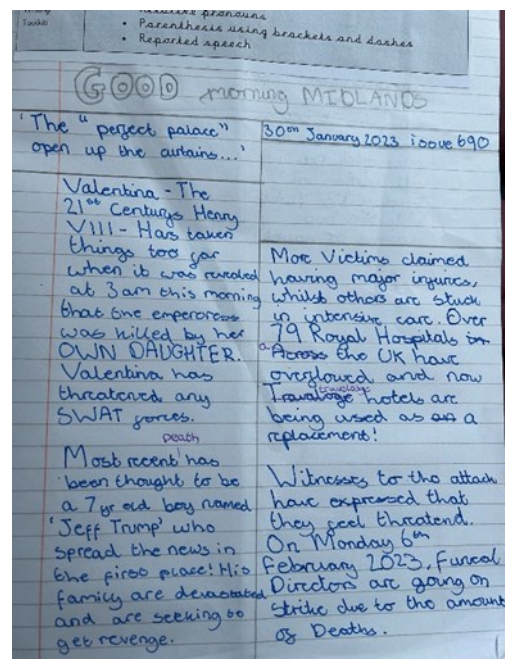 Relative pronouns
Toolkit
Parenthesis using brackets and dashes
Reported speech
GOOD morning MIDLANDS
'The "perfect palace"
open up the curtains...'
30th January 2023 issue 690
Valentina - The
21st Centurys Henry
VIII - Has taken
things too far
when it was revealed
at 3am this morning
that the emperoress
was killed by her
OWN DAUGHTER.
Valentina has
threatened any
SWAT forces.
death
Most recent has
been thought to be
a 7yr old boy named
'Jeff Trump' who
spread the news in
the first place! His
family are devastated
and are seeking to
get revenge.
More Victims claimed
having major injuries,
whilst others are stuck
in intensive care. Over
79 Royal Hospitals in
Across the UK have
overflowed and now
travaloge
Travaloge hotels are
being used as an a
replacement!
Witnesses to the attack
have expressed that
they feel threatend.
On Monday 6th
February 2023, Funeal
Directors are going on
strike due to the amount
of Deaths.